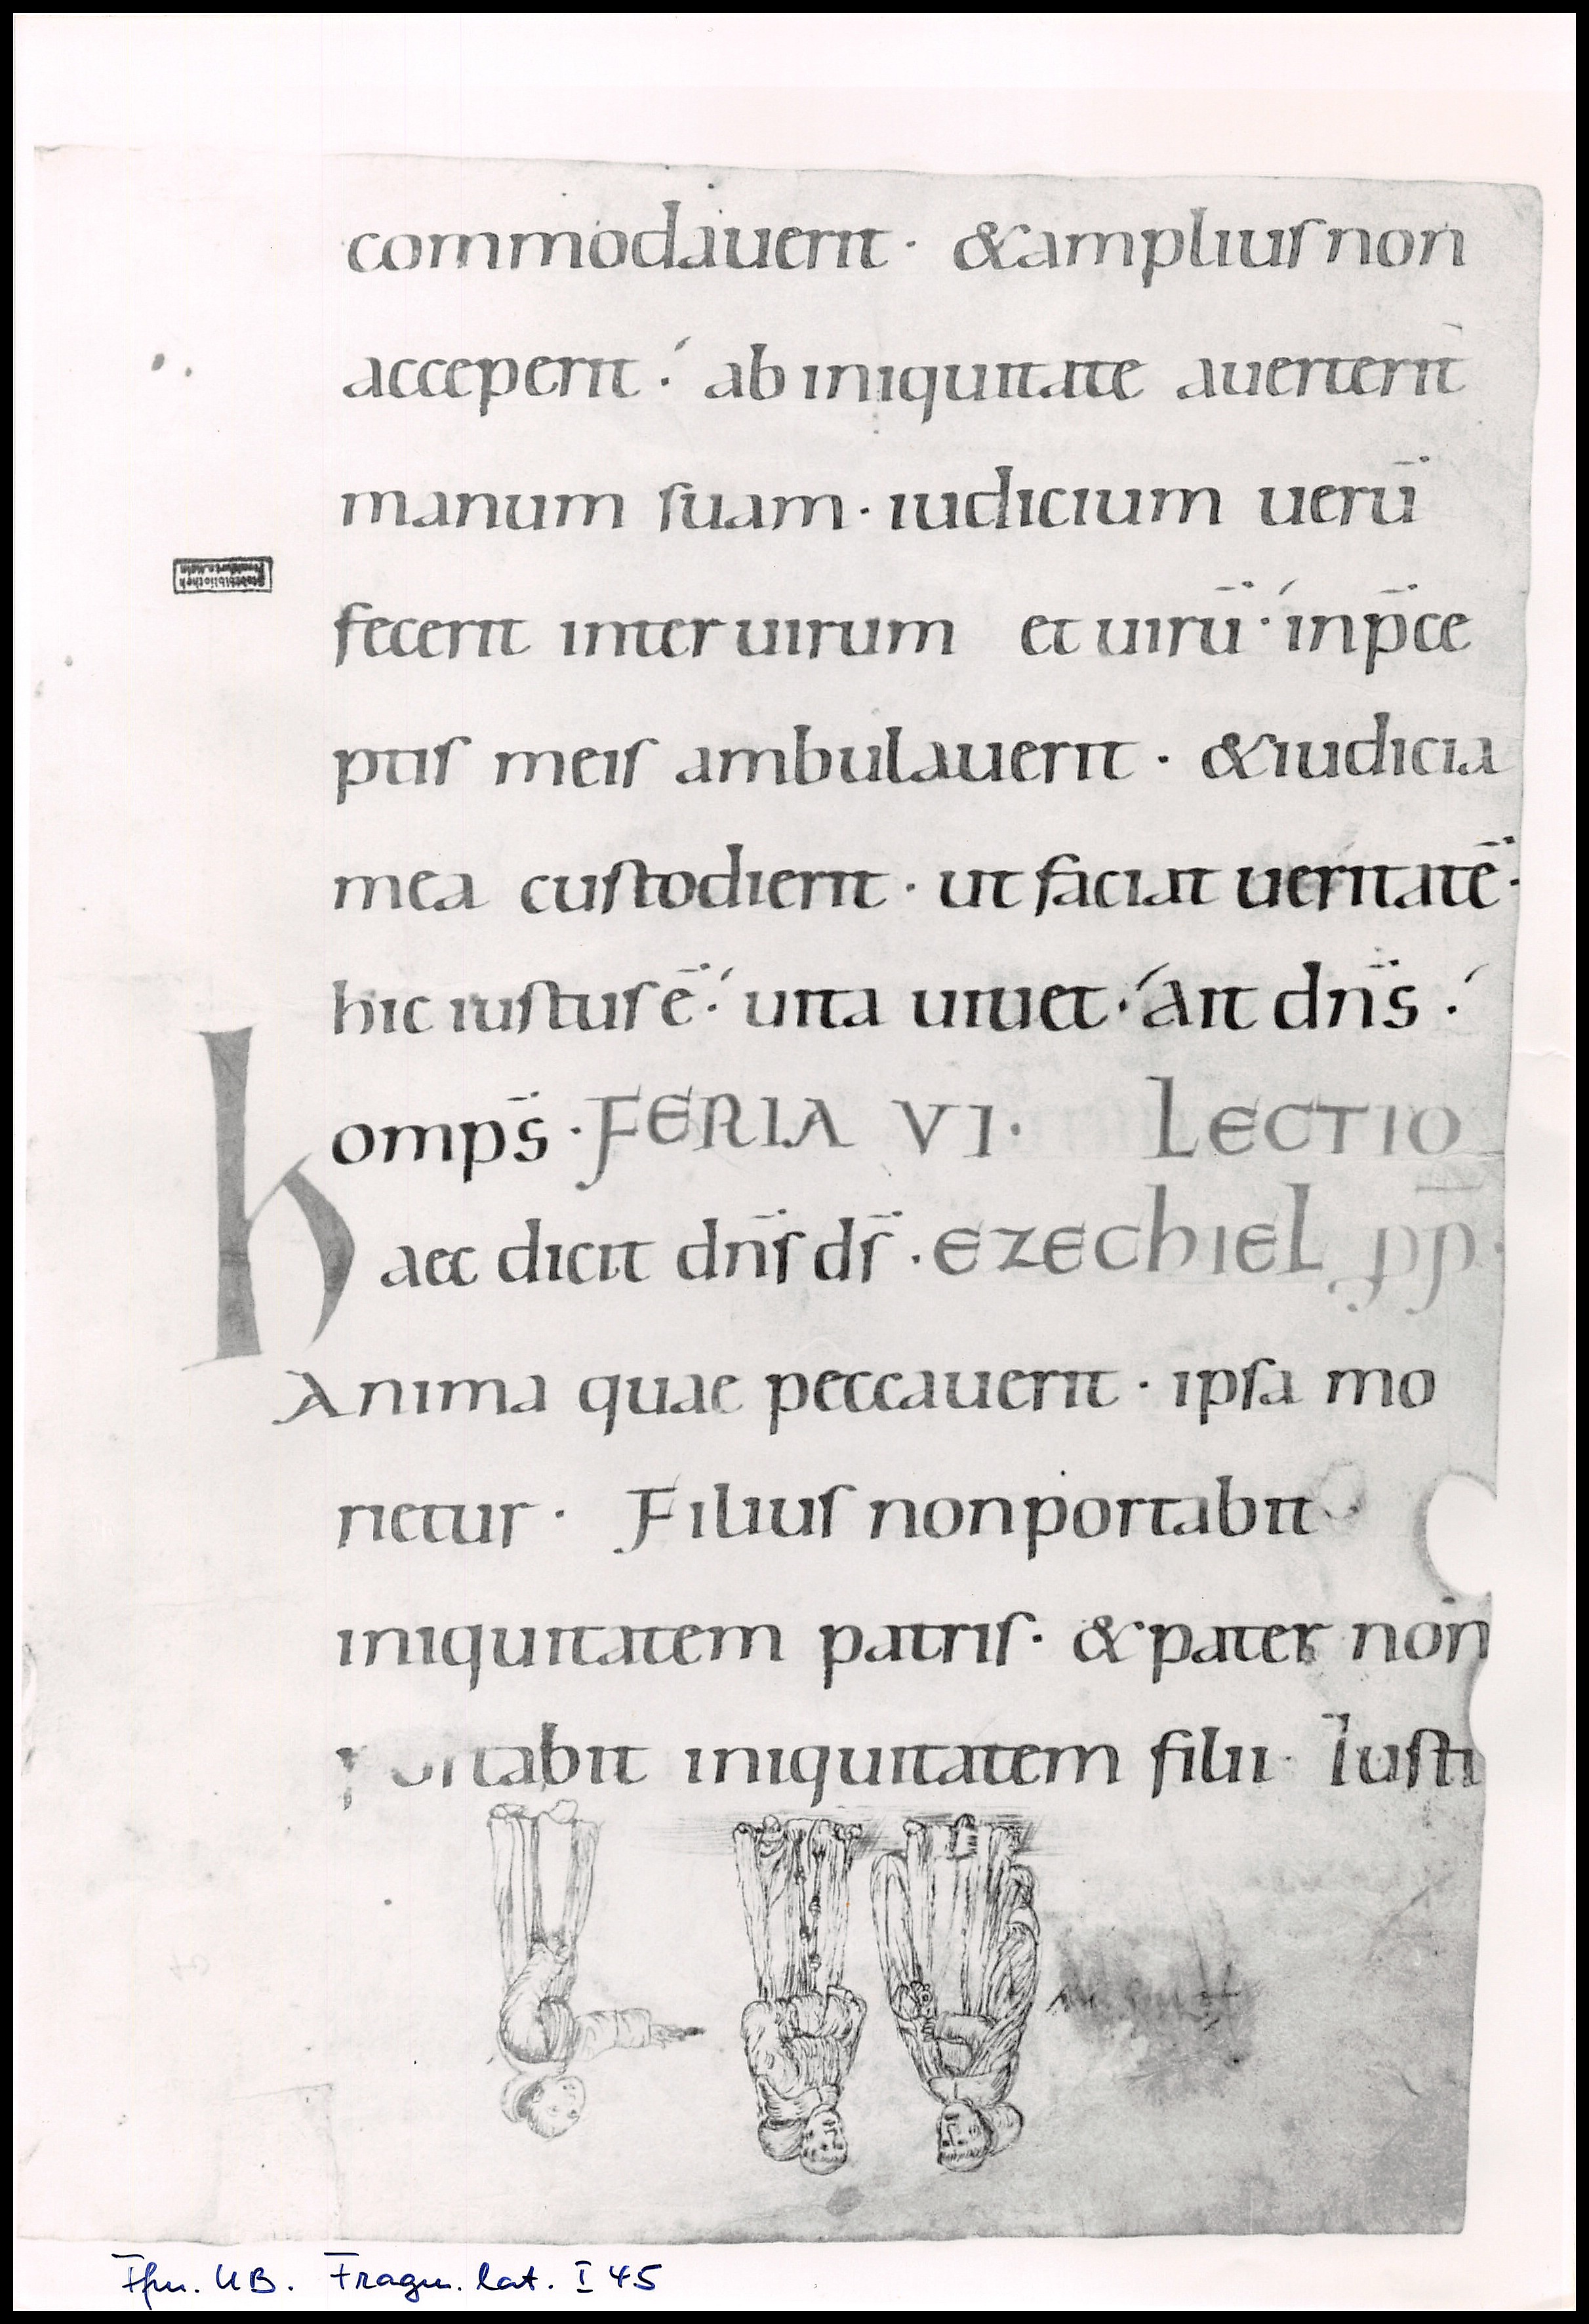 commodauerit · &amplius non
acceperit ·́ ab iniquitate auerterit
manum suam · iudicium uerū
fecerit inter uirum et uirū ·́ in p̄ce
ptis meis ambulauerit · & iudicia
mea custodierit · ut faciat ueritatē ·
hic iustus ē ·́ uita uiuet ·́ ait dn̄s ·́
omp̄s · FERIA VI · LECTIO
haec dicit dn̄s ds̄ · EZECHIEL pp̄ ·
Anima quae peccauerit · ipsa mo
rietur · Filius non portabit
iniquitatem patris · & pater non
portabit iniquitatem filii · Iusti
Stadtbibliothek
Frankfurt a. Main
Ffm. UB. Fragm. lat. I 45